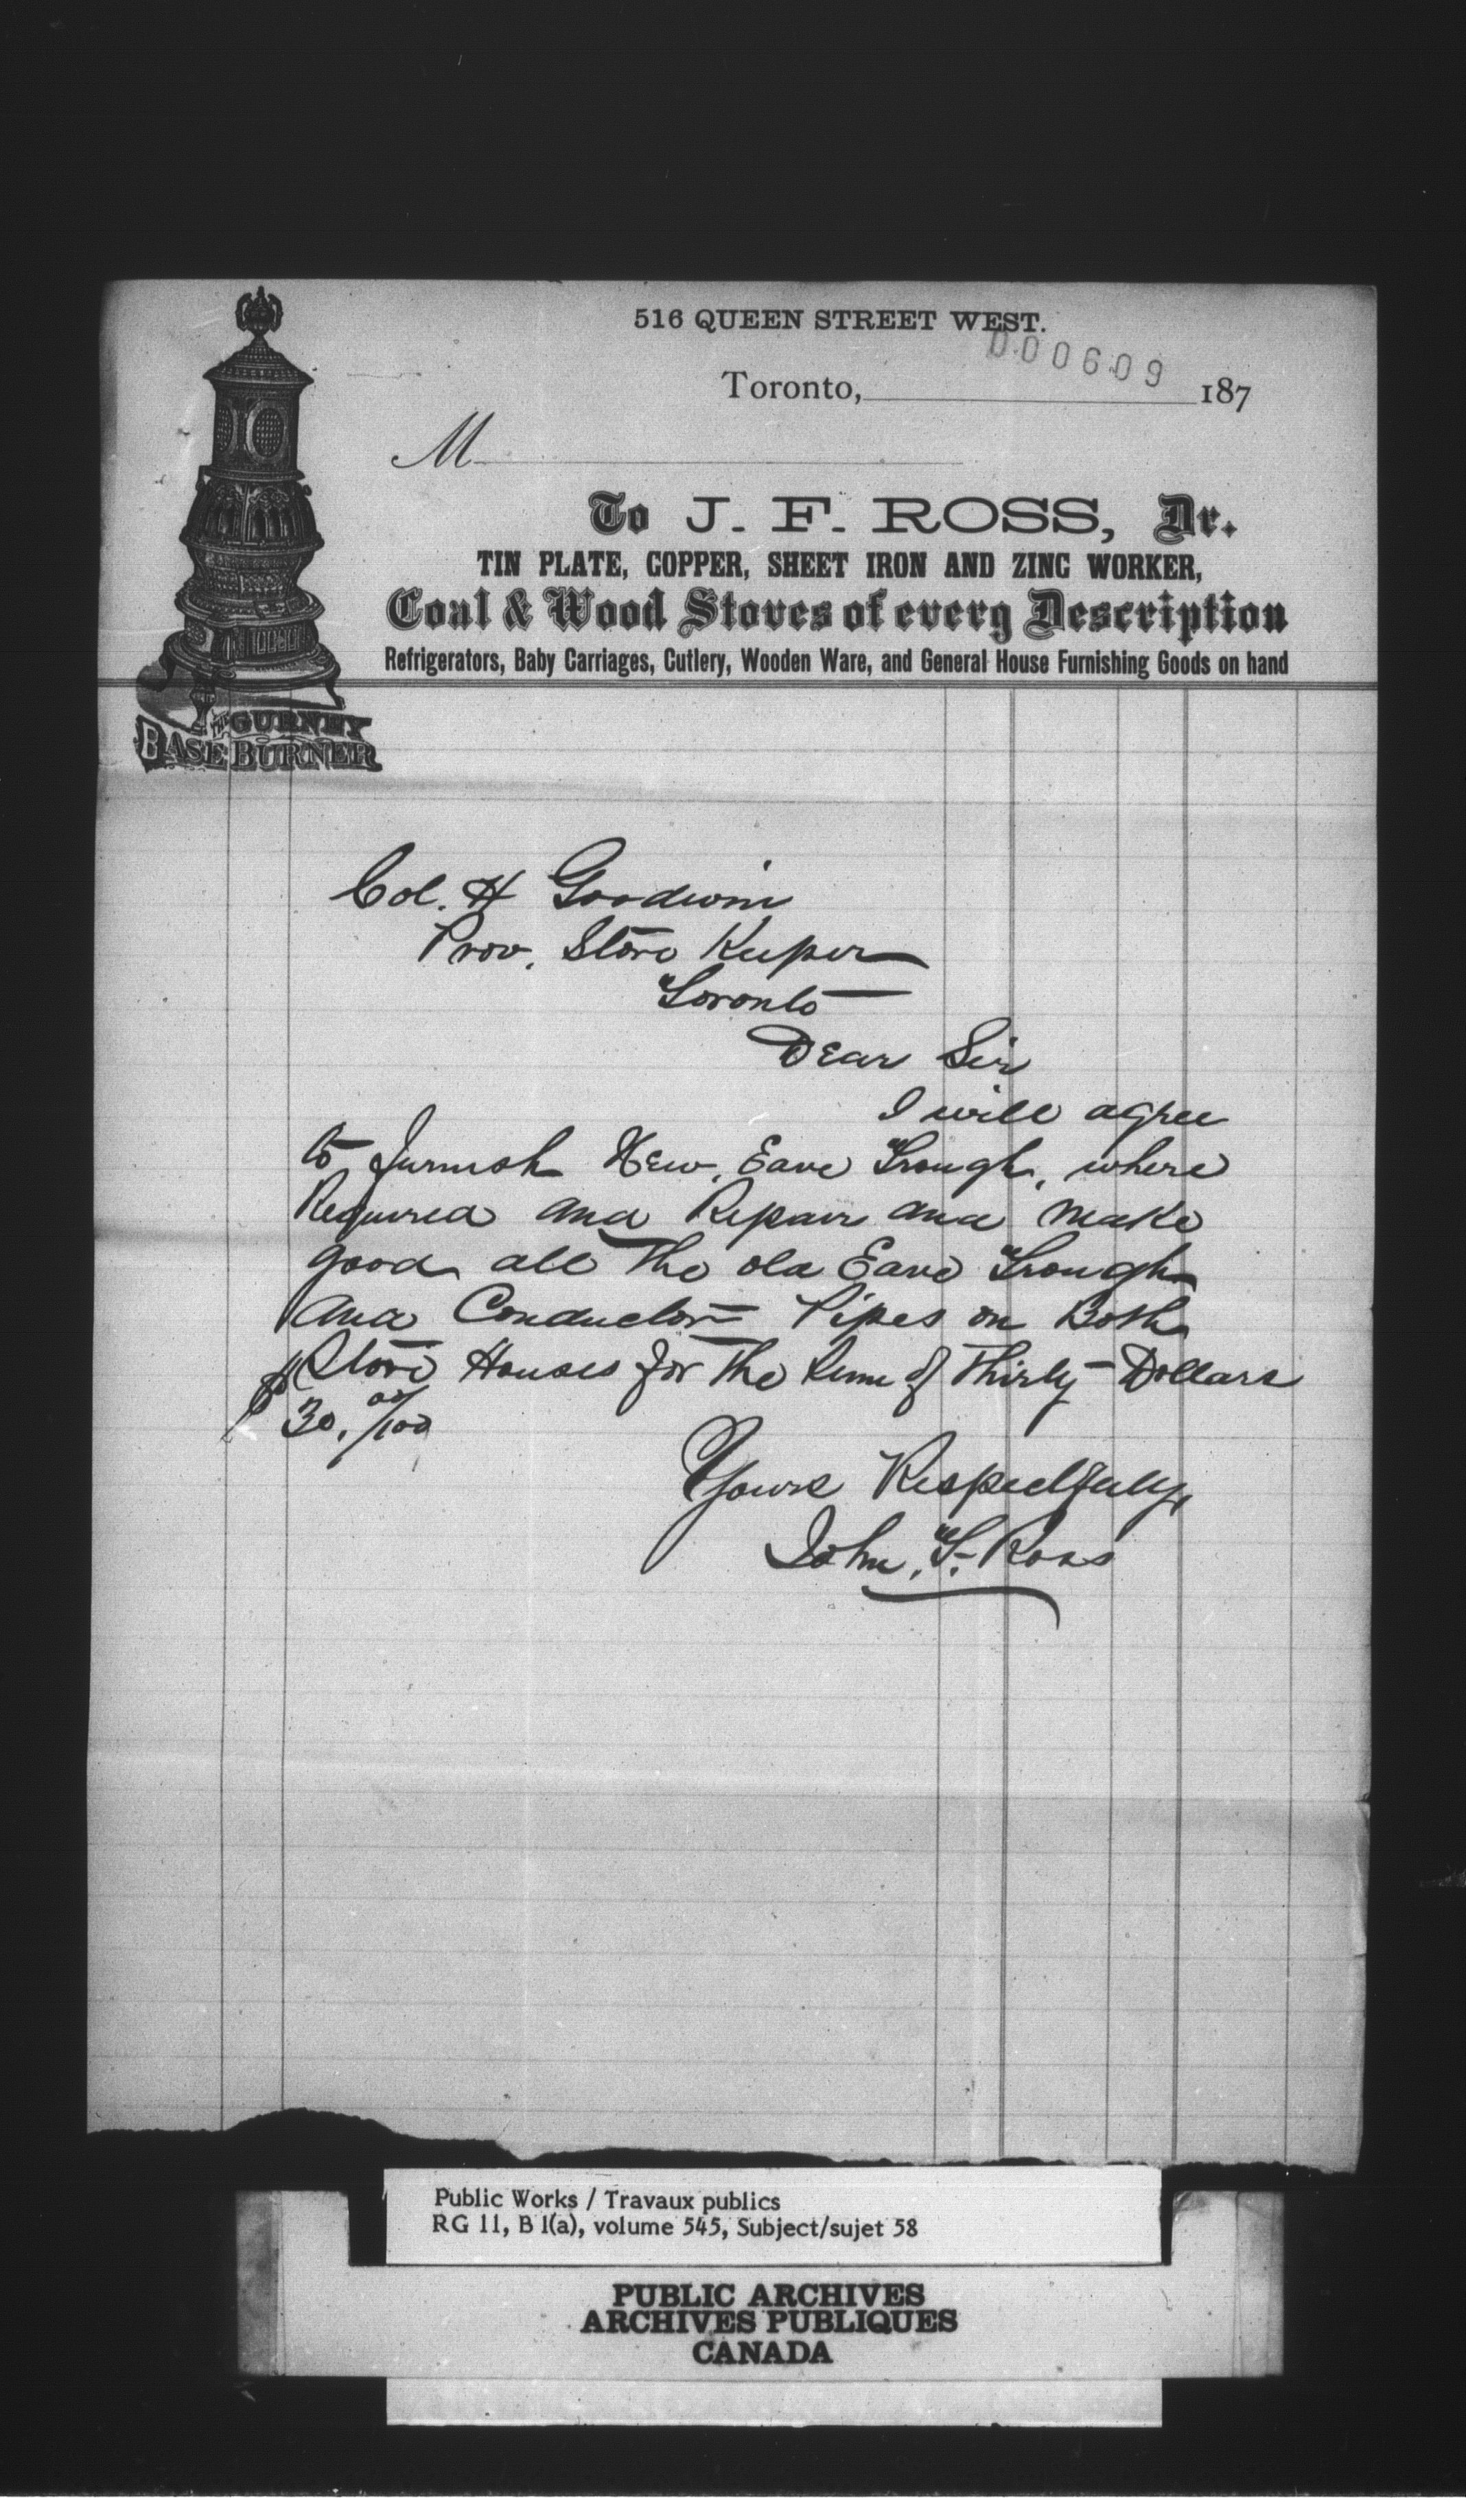 516 QUEEN STREET WEST.
000609
Toronto, 187
M
To J. F. ROSS, Dr.
TIN PLATE, COPPER, SHEET IRON AND ZINC WORKER,
Coal & Wood Stoves of every Description
Refrigerators, Baby Carriages, Cutlery, Wooden Ware, and General House Furnishing Goods on hand
THE GURNEY
BASE BURNER
Col. H Goodwin
Prov. Store Keeper
Toronto
Dear Sir
I will agree
to furnish New, Eave Trough, where
Required and Repair and make
good all the old Eave Trough
and Conductor Pipes on Both
Store Houses for The Sum of Thirty Dollars
$30.00/100
Yours Respectfully,
John. F. Ross
Public Works / Travaux publics
RG 11, B 1(a), volume 545, Subject/sujet 58
PUBLIC ARCHIVES
ARCHIVES PUBLIQUES
CANADA